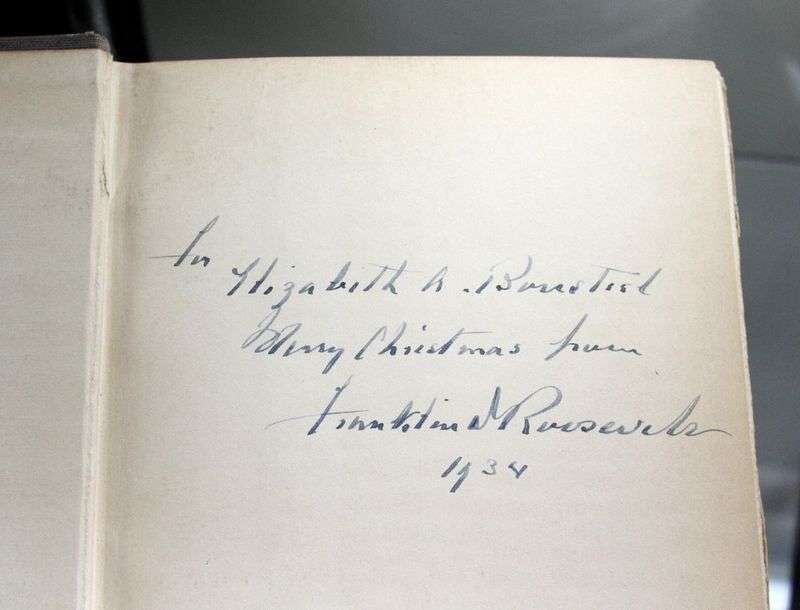 for
Elizabeth A. Bonsteel
Merry Christmas from
Franklin D Roosevelt
1934